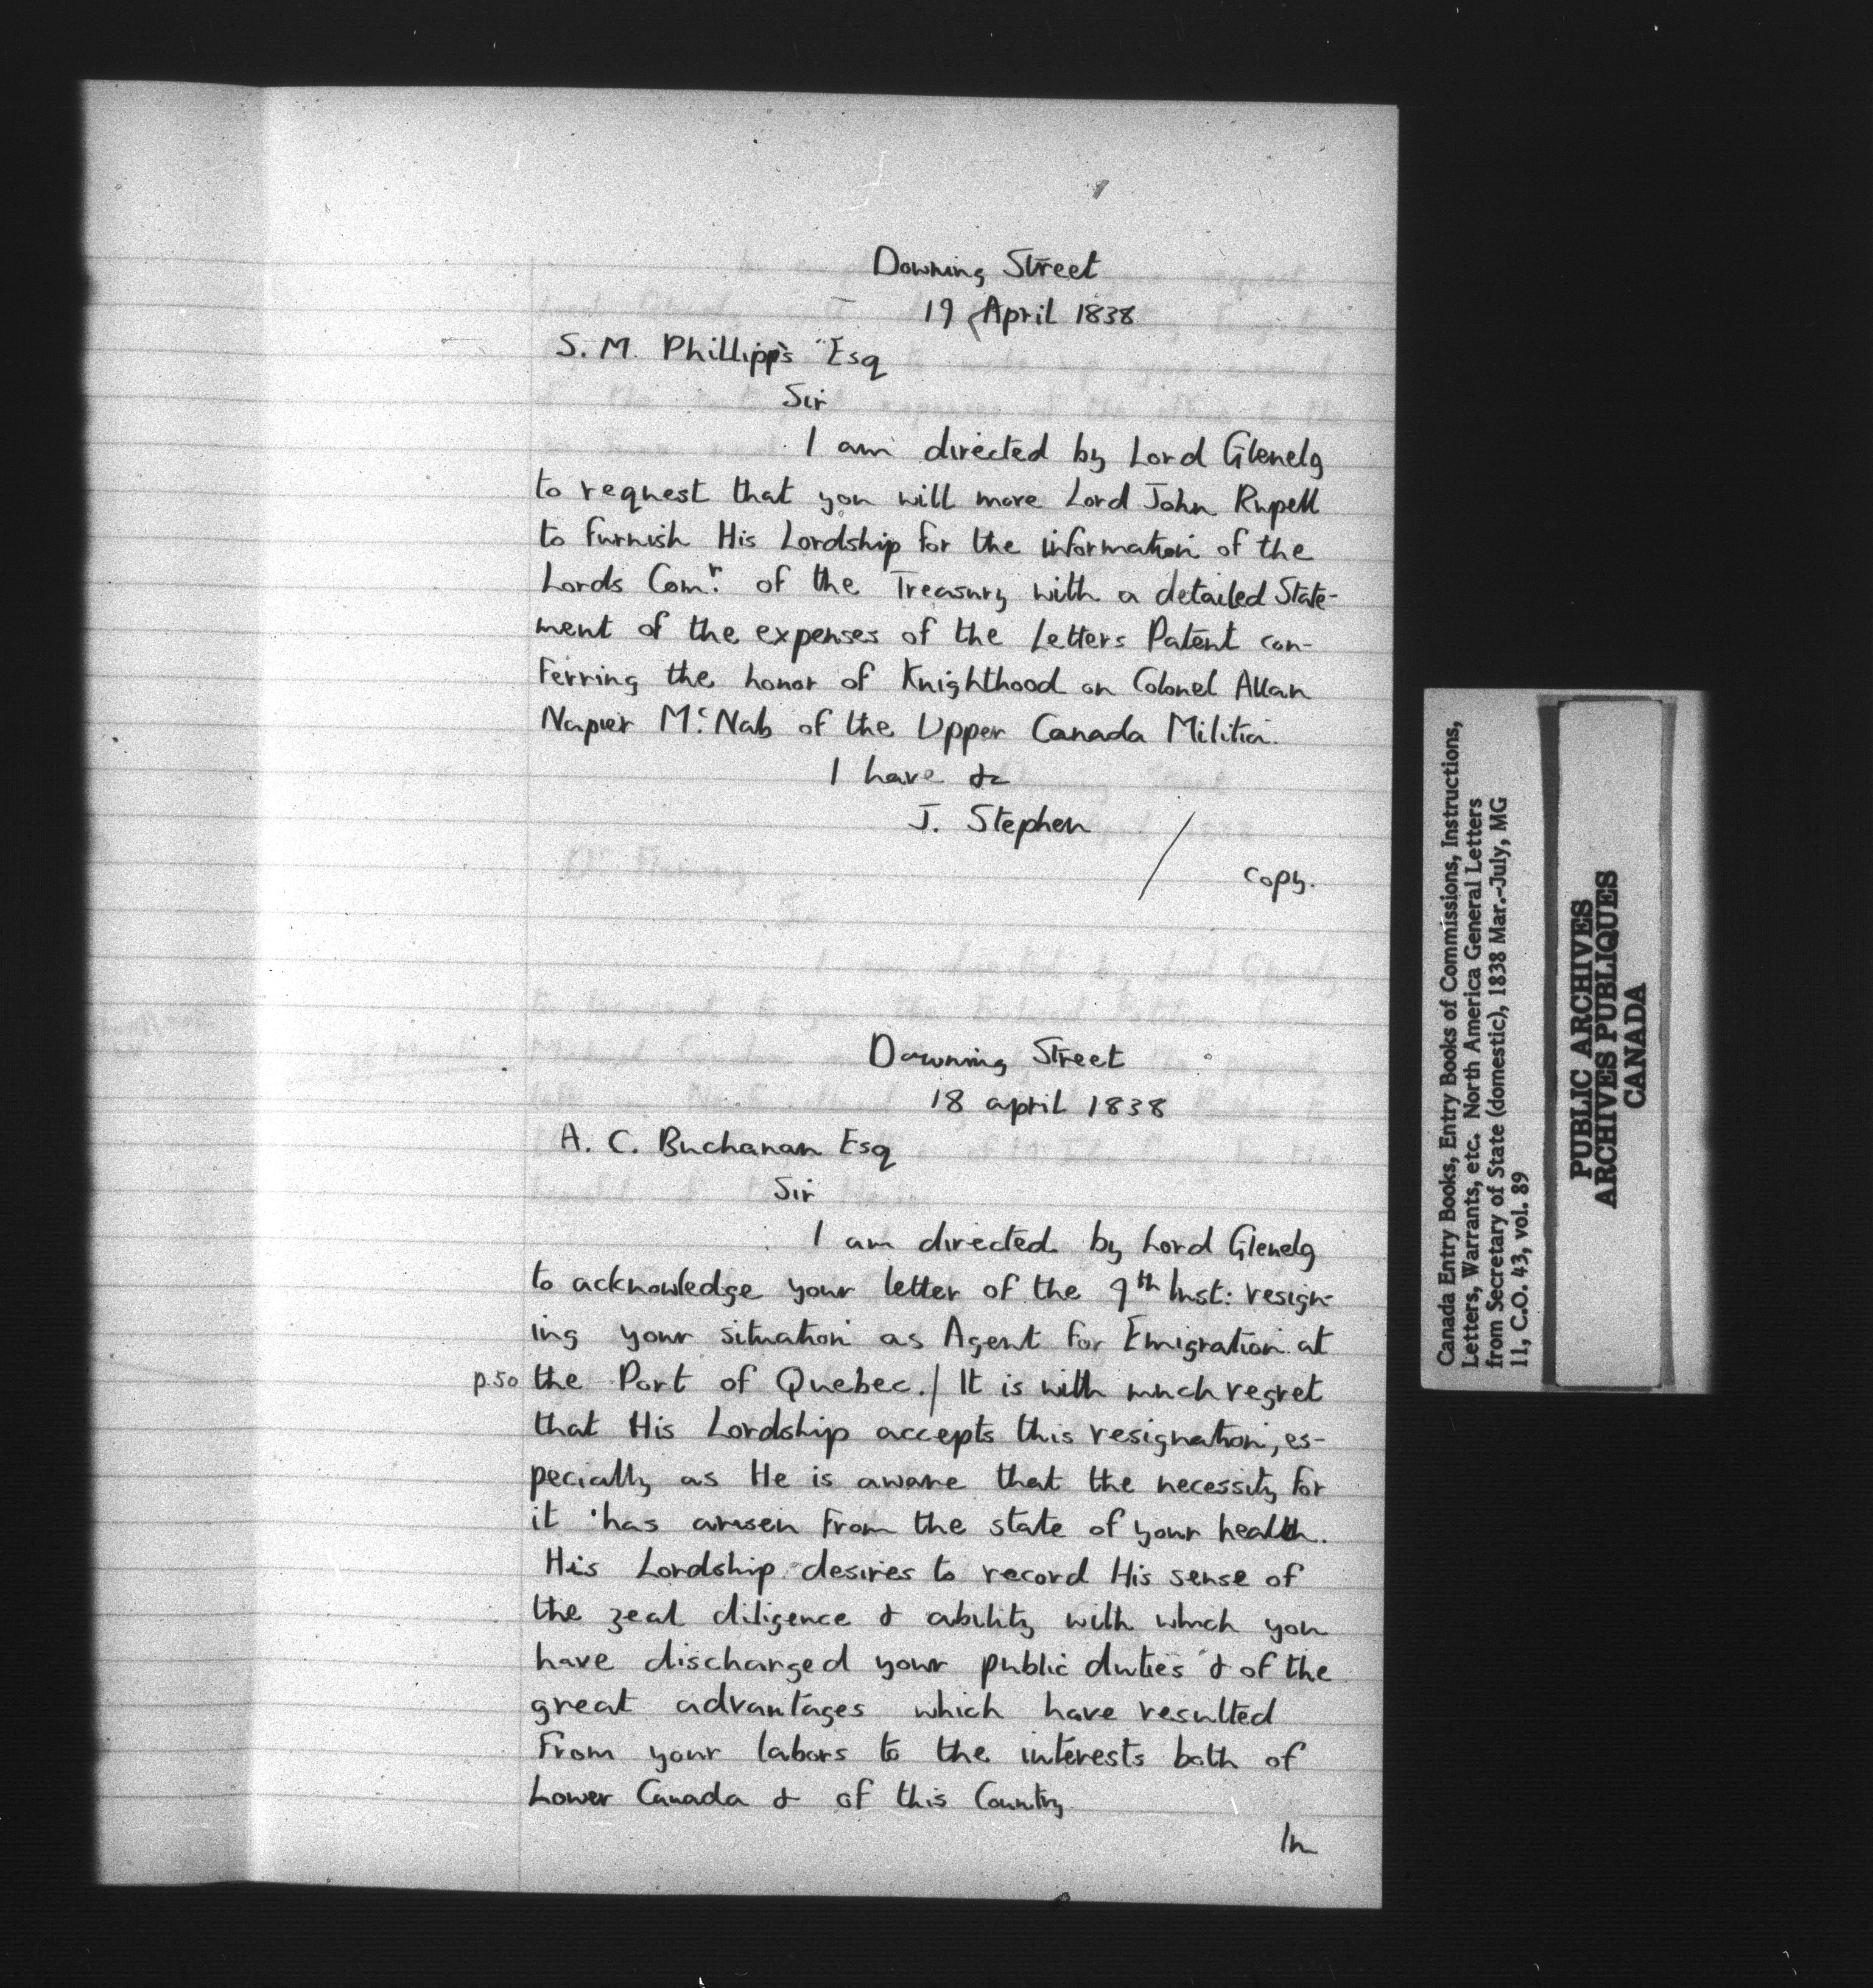 Downing Street
19 April 1838
S. M. Phillipps Esq
Sir
I am directed by Lord Glenelg
to request that you will move Lord John Rupell
to furnish His Lordship for the information of the
Lords Comr. of the Treasury with a detailed State-
ment of the expenses of the Letters Patent con-
ferring the honor of Knighthood on Colonel Allan
Napier Mc.Nab of the Upper Canada Militia.
I have &c
J. Stephen
/ copy.
Downing Street
18 april 1838
A. C. Buchanan Esq
Sir
I am directed by Lord Glenelg
to acknowledge your letter of the 9th Inst: resign-
ing your situation as Agent for Emigration at
p.50 the Port of Quebec./ It is with much regret
that His Lordship accepts this resignation, es-
pecially as He is aware that the necessity for
it has arisen from the state of your health.
His Lordship desires to record His sense of
the zeal diligence & ability with which you
have discharged your public duties & of the
great advantages which have resulted
from your labors to the interests both of
Lower Canada & of this Country
In
Canada Entry Books, Entry Books of Commissions, Instructions,
Letters, Warrants, etc. North America General Letters
from Secretary of State (domestic), 1838 Mar.-July, MG
11, C.O. 43, vol. 89
PUBLIC ARCHIVES
ARCHIVES PUBLIQUES
CANADA